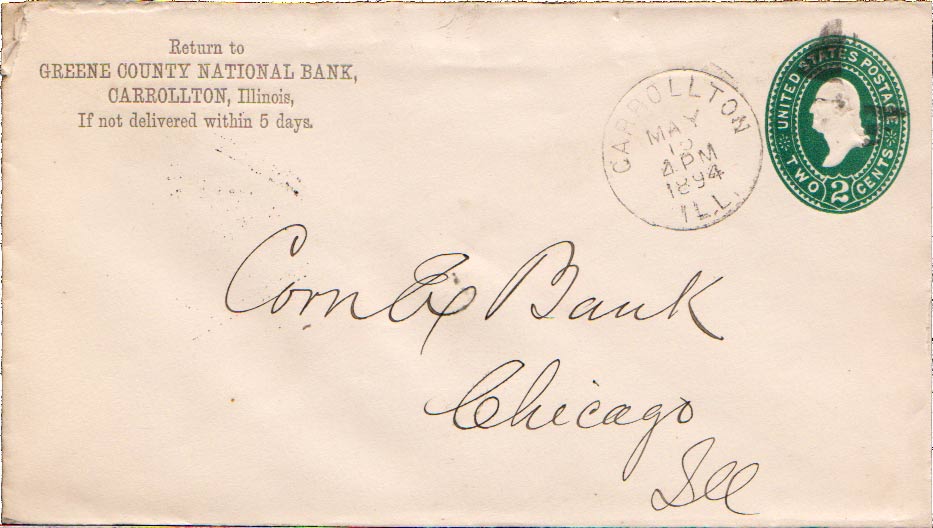 Return to
GREENE COUNTY NATIONAL BANK,
CARROLLTON, Illinois,
If not delivered within 5 days.
CARROLLTON
MAY
4 PM
1894
ILL.
UNITED STATES POSTAGE
TWO 2 CENTS
Corn Ex Bank
Chicago
Ill